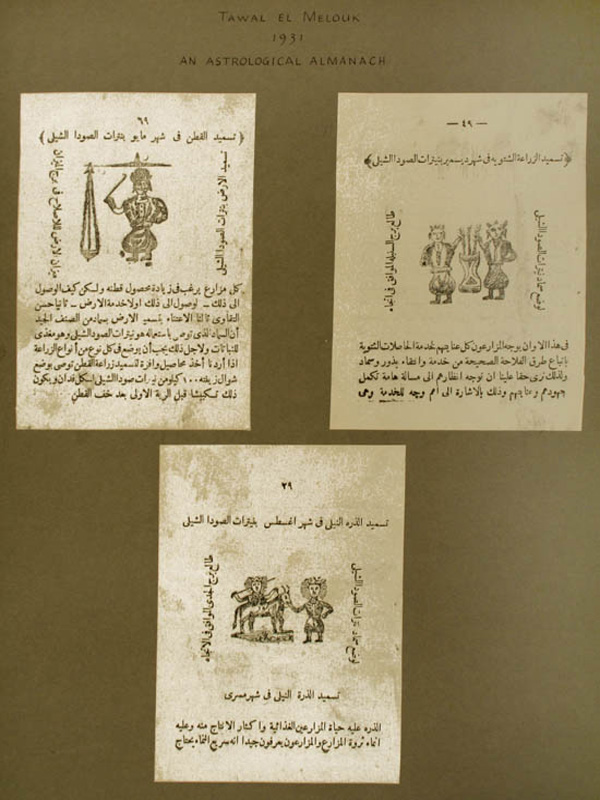 TAWAL EL MELOUK
1931
AN ASTROLOGICAL ALMANACH
٦٩
﴿ تسميد القطن فى شهر مايو بنترات الصودا الشيلى ﴾
تسميد الارض بنترات الصودا الشيلى
كل مزارع يرغب فى زيادة محصول قطنه ولكن كيف الوصول
الى ذلك — لوصول الى ذلك اولا خدمة الارض — ثانيا حسن
التقاوى ثالثا الاعتناء بتسميد الارض بسماد من الصنف الجيد
أن السماد الذى نوصى باستعماله هو نيترات الصودا الشيلى وهو مغذى
للنباتات ولاجل ذلك يجب أن يوضع فى كل نوع من أنواع الزراعة
اذا أردنا أخذ محاصيل وافرة لتسميد زراعة القطن نوصى بوضع
شوال زنته ١٠٠ كيلو من نيترات صودا الشيلى لكل فدان ويكون
ذلك تكبيشا قبل الرية الاولى بعد خف القطن
— ٤٩ —
﴿ تسميد الزراعة الشتويه فى شهر ديسمبر بنيترات الصودا الشيلى ﴾
لوضع سماد نيترات الصودا الشيلى
طالع برج السنبلة الموافق فى اتجاه
فى هذا الاوان يوجه المزارعون كل عنايتهم لخدمة الحاصلات الشتوية
باتباع طرق الفلاحة الصحيحة من خدمة وانتقاء بذور وسماد
ولذلك نرى حقا علينا ان نوجه انظارهم الى مسألة هامة تكمل
مجهودهم وعنايتهم وذلك بالاشارة الى اهم وجه للخدمة وهى
٢٩
تسميد الذره النيلى فى شهر اغسطس بنيترات الصودا الشيلى
لوضع سماد نترات الصودا الشيلى
طالع برج الجدى الموافق فى الاتجاه
تسميد الذرة النيلى فى شهر مسرى
الذره عليه حياة المزارعين الغذائية واكثار الانتاج منه وعليه
انماء ثروة المزارع والمزارعون يعرفون جيدا انه سريع النماء يحتاج